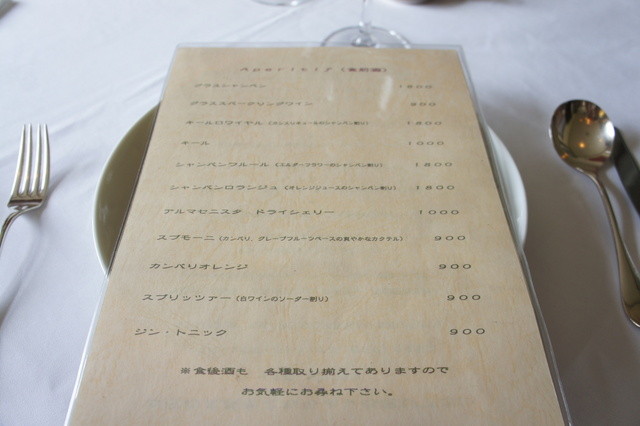 Aperitif（食前酒）
グラスシャンパン 1800
グラススパークリングワイン 900
キールロワイヤル（カシスリキュールのシャンパン割り） 1800
キール 1000
シャンパンフルール（エルダーフラワーのシャンパン割り） 1800
シャンパンロランジュ（オレンジジュースのシャンパン割り） 1800
アルマセニスタ ドライシェリー 1000
スプモーニ（カンパリ、グレープフルーツベースの爽やかなカクテル） 900
カンパリオレンジ 900
スプリッツァー（白ワインのソーダー割り） 900
ジン・トニック 900
※食後酒も 各種取り揃えてありますので
お気軽にお尋ね下さい。